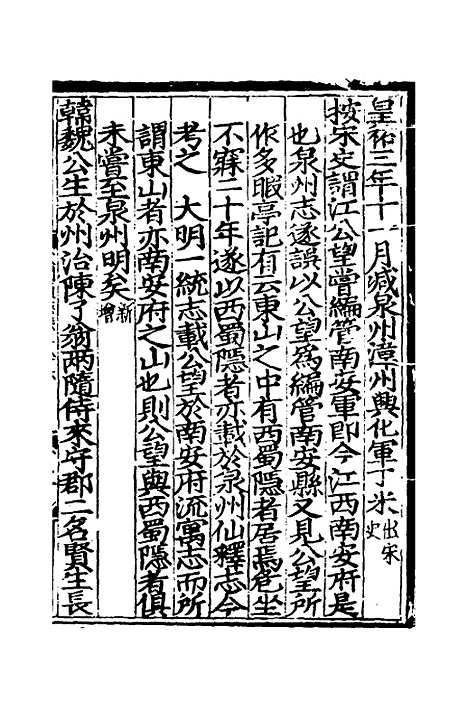 皇祐三年十一月減泉州漳州興化軍丁米出宋史
按宋史謂江公望嘗編管南安軍即今江西南安府是
也泉州志遂誤以公望為編管南安縣又見公望所
作多暇亭記有云東山之中有西蜀隱者居焉危坐
不寐二十年遂以西蜀隱者亦載於泉州仙釋志今
考之　大明一統志載公望於南安府流寓志而所
謂東山者亦南安府之山也則公望與西蜀隱者俱
未嘗至泉州明矣新增
韓魏公生於州治陳了翁兩隨侍來守郡二名賢生長